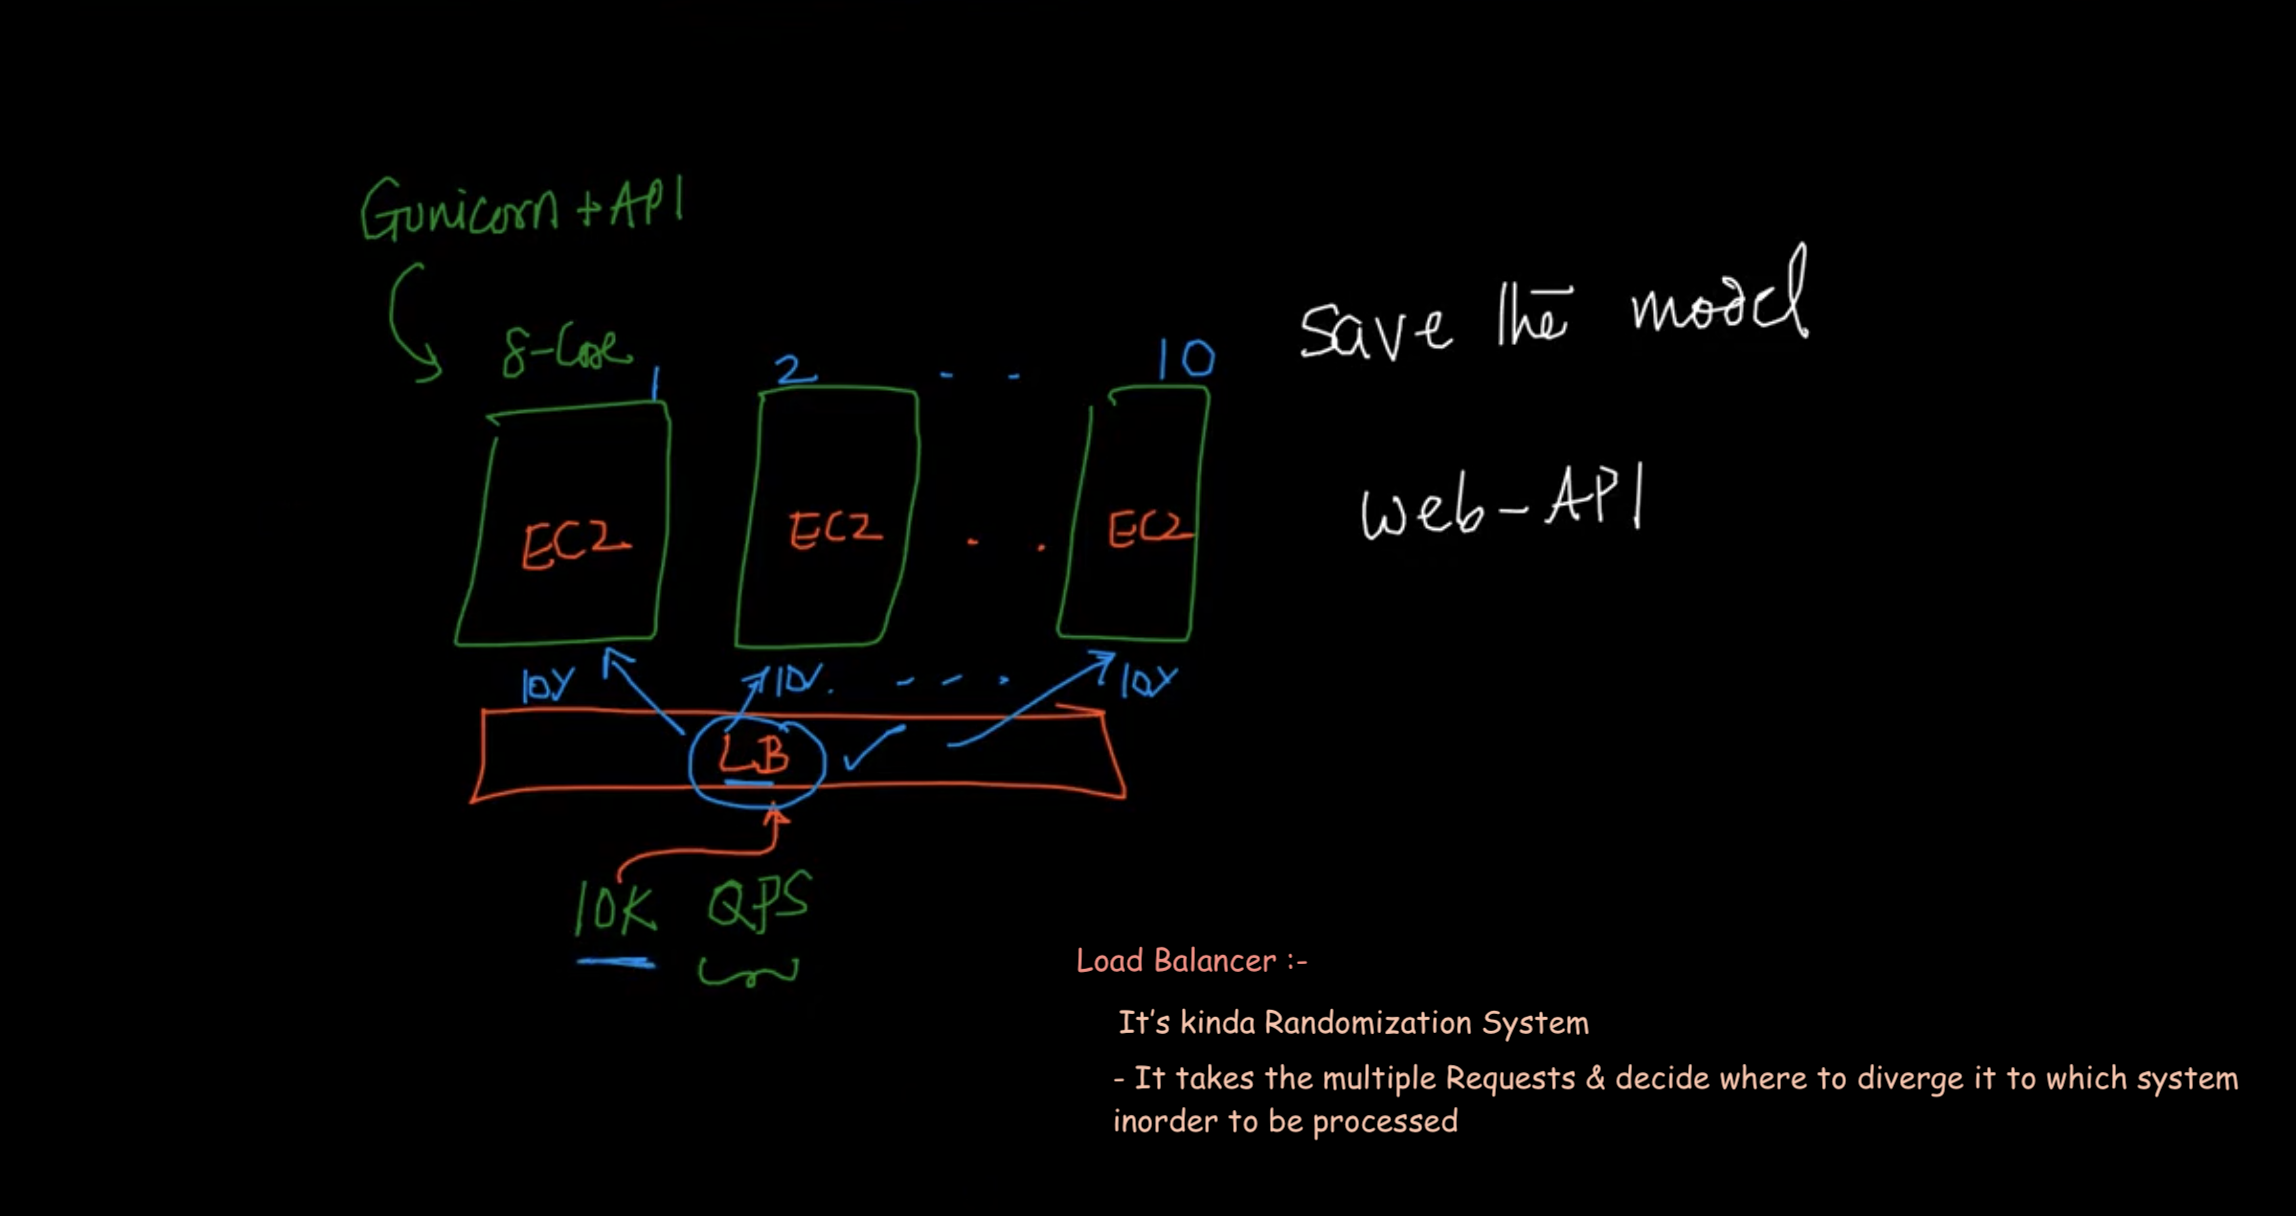 Gunicorn + API
8-Core
1 2 - - 10
EC2 EC2 . . EC2
10% 10%. - - - 10%
LB
10K QPS
Save the model
Web-API
Load Balancer :-
It's kinda Randomization System
- It takes the multiple Requests & decide where to diverge it to which system
inorder to be processed